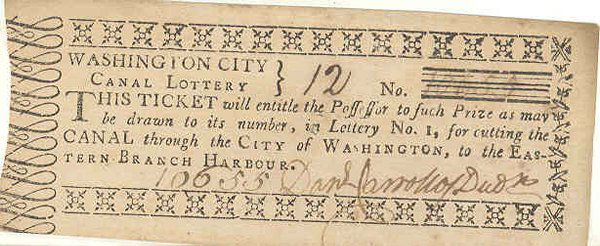 WASHINGTON CITY
CANAL LOTTERY } 12 No.
THIS TICKET will entitle the Poſſeſſor to ſuch Prize as may
be drawn to its number, in Lottery No. 1, for cutting the
CANAL through the CITY of WASHINGTON, to the EAS-
TERN BRANCH HARBOUR.
10655 Danl Carroll of Ddn